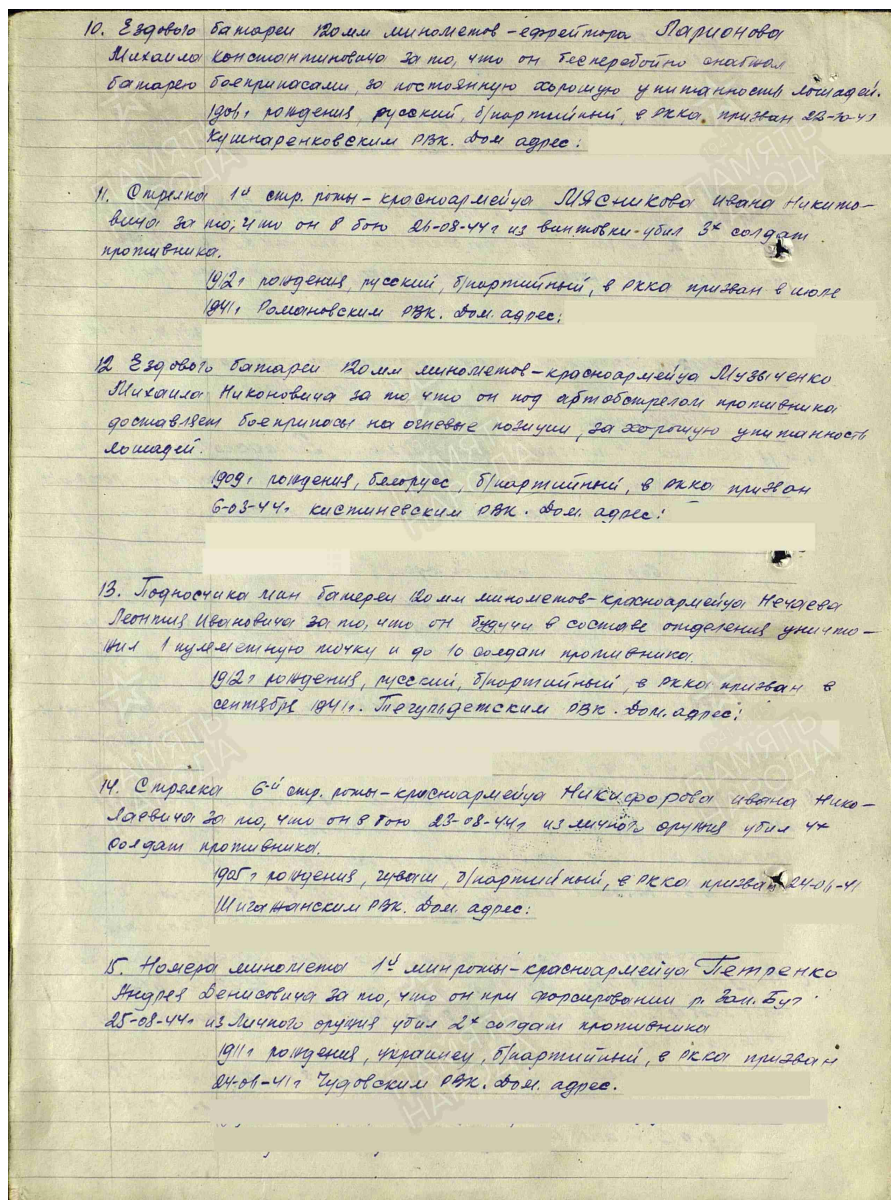 10. Ездового батареи 120 мм минометов - ефрейтора Ларионова
Михаила Константиновича за то, что он бесперебойно снабжал
батарею боеприпасами, за постоянную хорошую упитанность лошадей.
рождения, русский, б/партийный, в РККА призван
Кушнаренковским РВК. Дом. адрес:
11. Стрелка 1й стр. роты - красноармейца МЯСНИКОВА Ивана Никито-
вича за то, что он в бою 26-08-44г из винтовки убил 3х солдат
противника.
1912г рождения, русский, б/партийный, в РККА призван в июле
1941г Романовским РВК. Дом. адрес:
12 Ездового батареи 120 мм минометов - красноармейца Музыченко
Михаила Никоновича за то что он под артобстрелом противника
доставляет боеприпасы на огневые позиции, за хорошую упитанность
лошадей.
1909г рождения, белорусс, б/партийный, в РККА призван
6-03-44г кистиневским РВК. Дом. адрес:
13. Подносчика мин батареи 120 мм минометов - красноармейца Нечаева
Леонтия Ивановича за то, что он будучи в составе отделения уничто-
жил 1 пулеметную точку и до 10 солдат противника.
1912г рождения, русский, б/партийный, в РККА призван в
сентябре 1941г. Тегульдетским РВК. Дом. адрес:
14. Стрелка 6-й стр. роты - красноармейца Никифорова Ивана Нико-
лаевича за то, что он в бою 23-08-44г из личного оружия убил 4х
солдат противника.
1905г рождения, чуваш, б/партийный, в РККА призван 24-06-41
РВК. Дом. адрес:
15. Номера миномета 1й минроты - красноармейца Петренко
Андрея Денисовича за то, что он при форсировании р. Зап. Буг
25-08-44г из личного оружия убил 2х солдат противника
1911г рождения, украинец, б/партийный, в РККА призван
24-06-41г Чудовским РВК. Дом. адрес.
ПАМЯТЬ
НАРОДА